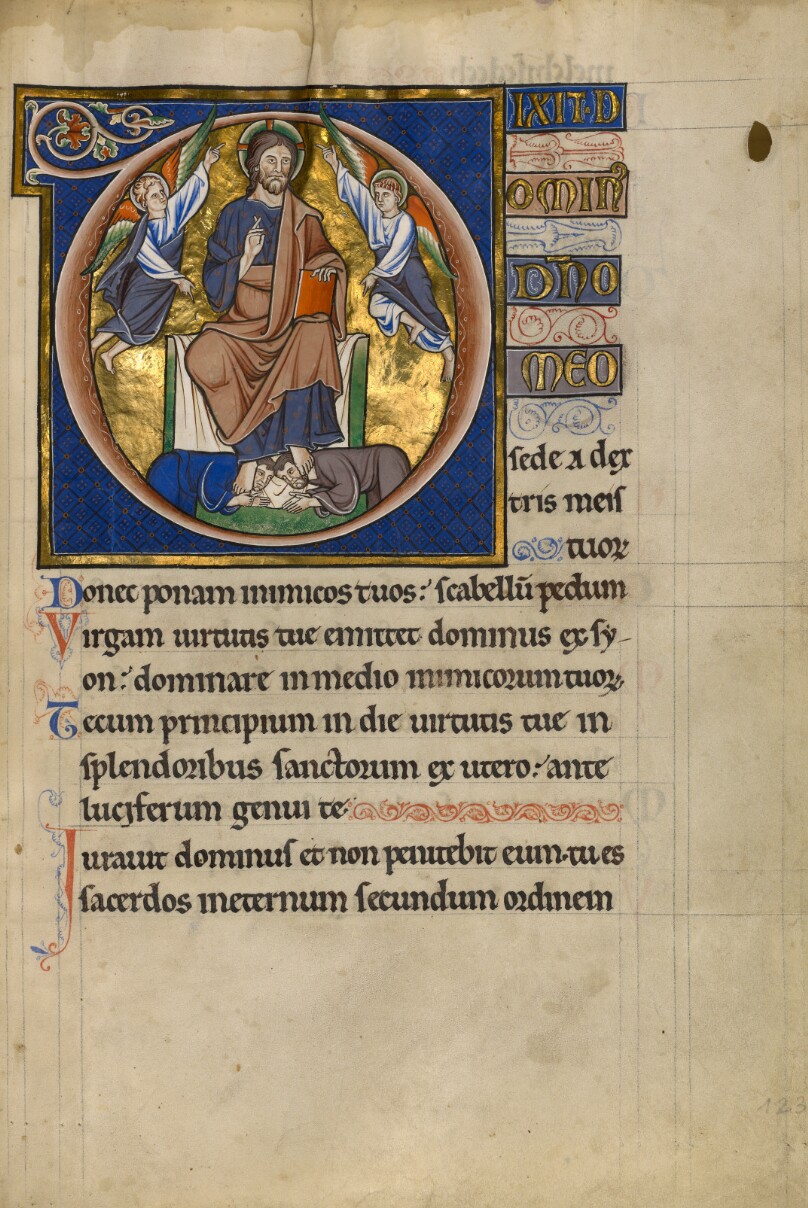 DIXIT·D
OMIN᷒
DN̄O
MEO
sede a dex
tris meis
Donec ponam inimicos tuos: scabellū pedum
tuoꝝ
Virgam uirtutis tue emittet dominus ex sy-
on: dominare in medio inimicorum tuoꝝ.
Tecum principium in die uirtutis tue in
splendoribus sanctorum ex utero: ante
luciferum genui te·
Iurauit dominus et non penitebit eum· tu es
sacerdos ineternum secundum ordinem
123